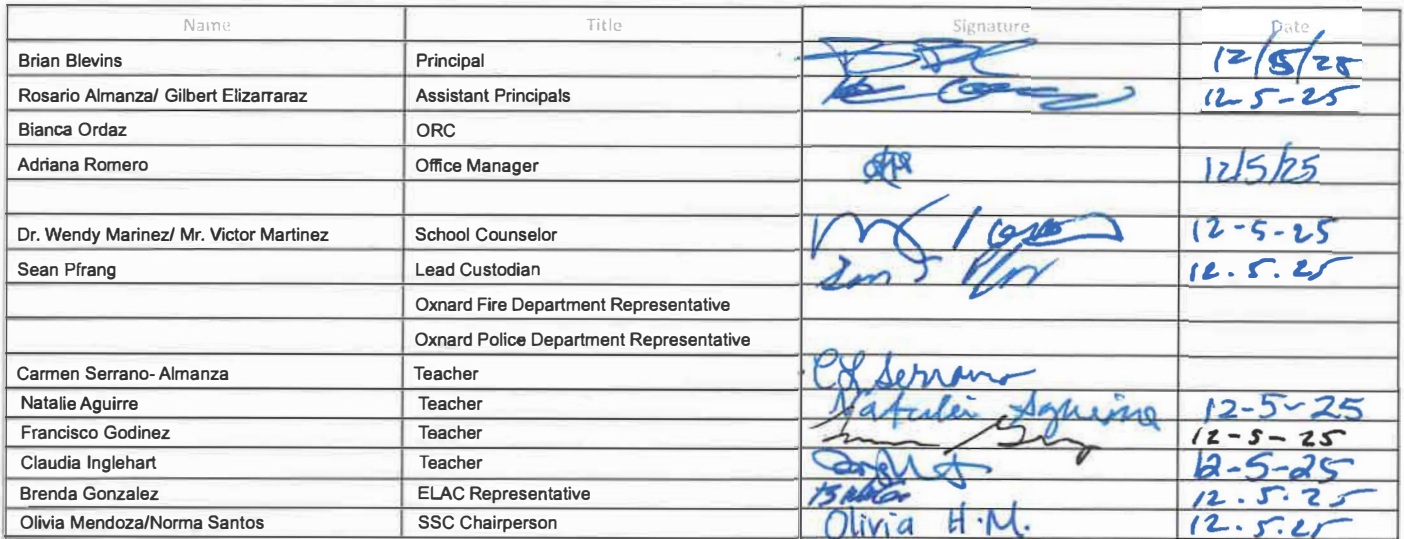 Name Title Signature Date
Brian Blevins Principal 12/5/25
Rosario Almanza/ Gilbert Elizarraraz Assistant Principals 12-5-25
Bianca Ordaz ORC
Adriana Romero Office Manager 12/5/25
Dr. Wendy Marinez/ Mr. Victor Martinez School Counselor 12-5-25
Sean Pfrang Lead Custodian 12.5.25
Oxnard Fire Department Representative
Oxnard Police Department Representative
Carmen Serrano- Almanza Teacher Serrano
Natalie Aguirre Teacher Natalie Aguirre 12-5-25
Francisco Godinez Teacher 12-5-25
Claudia Inglehart Teacher 12-5-25
Brenda Gonzalez ELAC Representative 12.5.25
Olivia Mendoza/Norma Santos SSC Chairperson Olivia H.M. 12.5.25